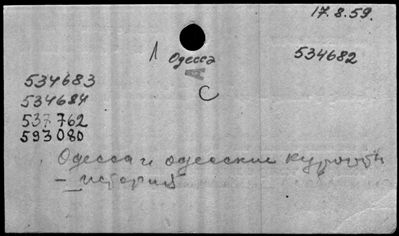 17.8.59.
1 Одесса 534682
А
С
534683
534684
537762
593080
Одесса и одесские курорты
– история